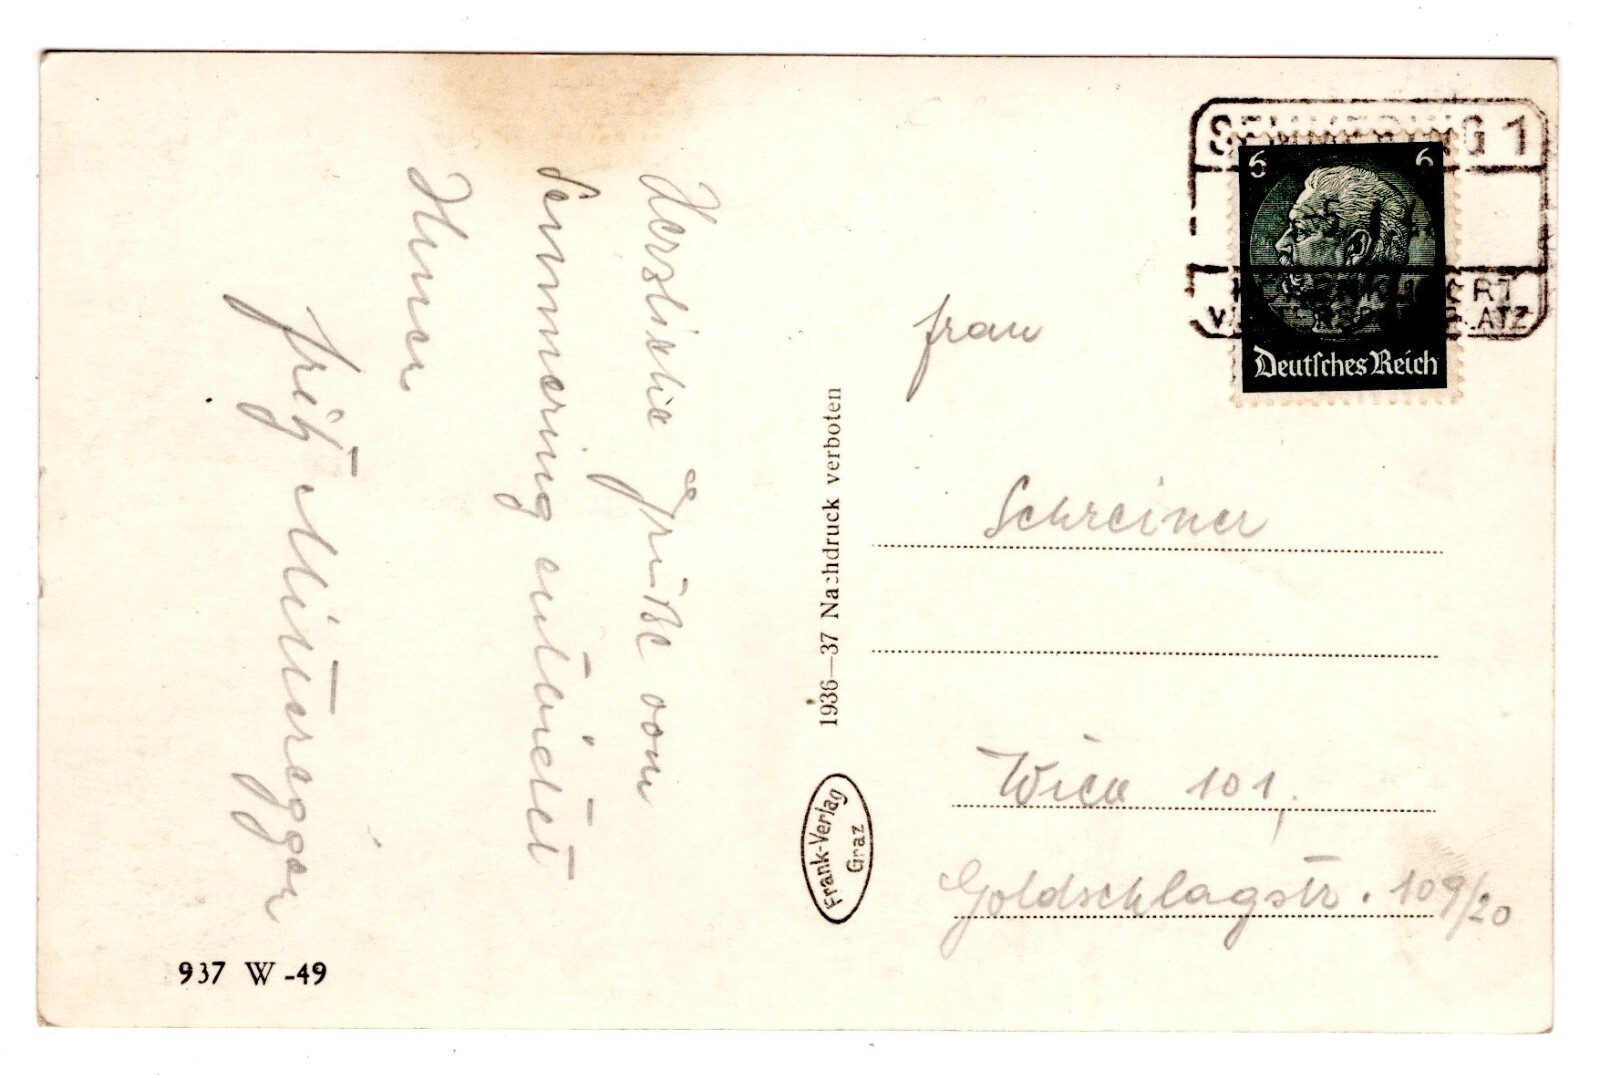 Herzliche Grüße vom
Semmering entbietet
Ihnen
Fritz
Frau
Schreiner
Wien 101,
Goldschlagstr. 109/20
1936—37 Nachdruck verboten
Frank-Verlag
Graz
SEMMERING 1
6 6
Deutsches Reich
937 W -49